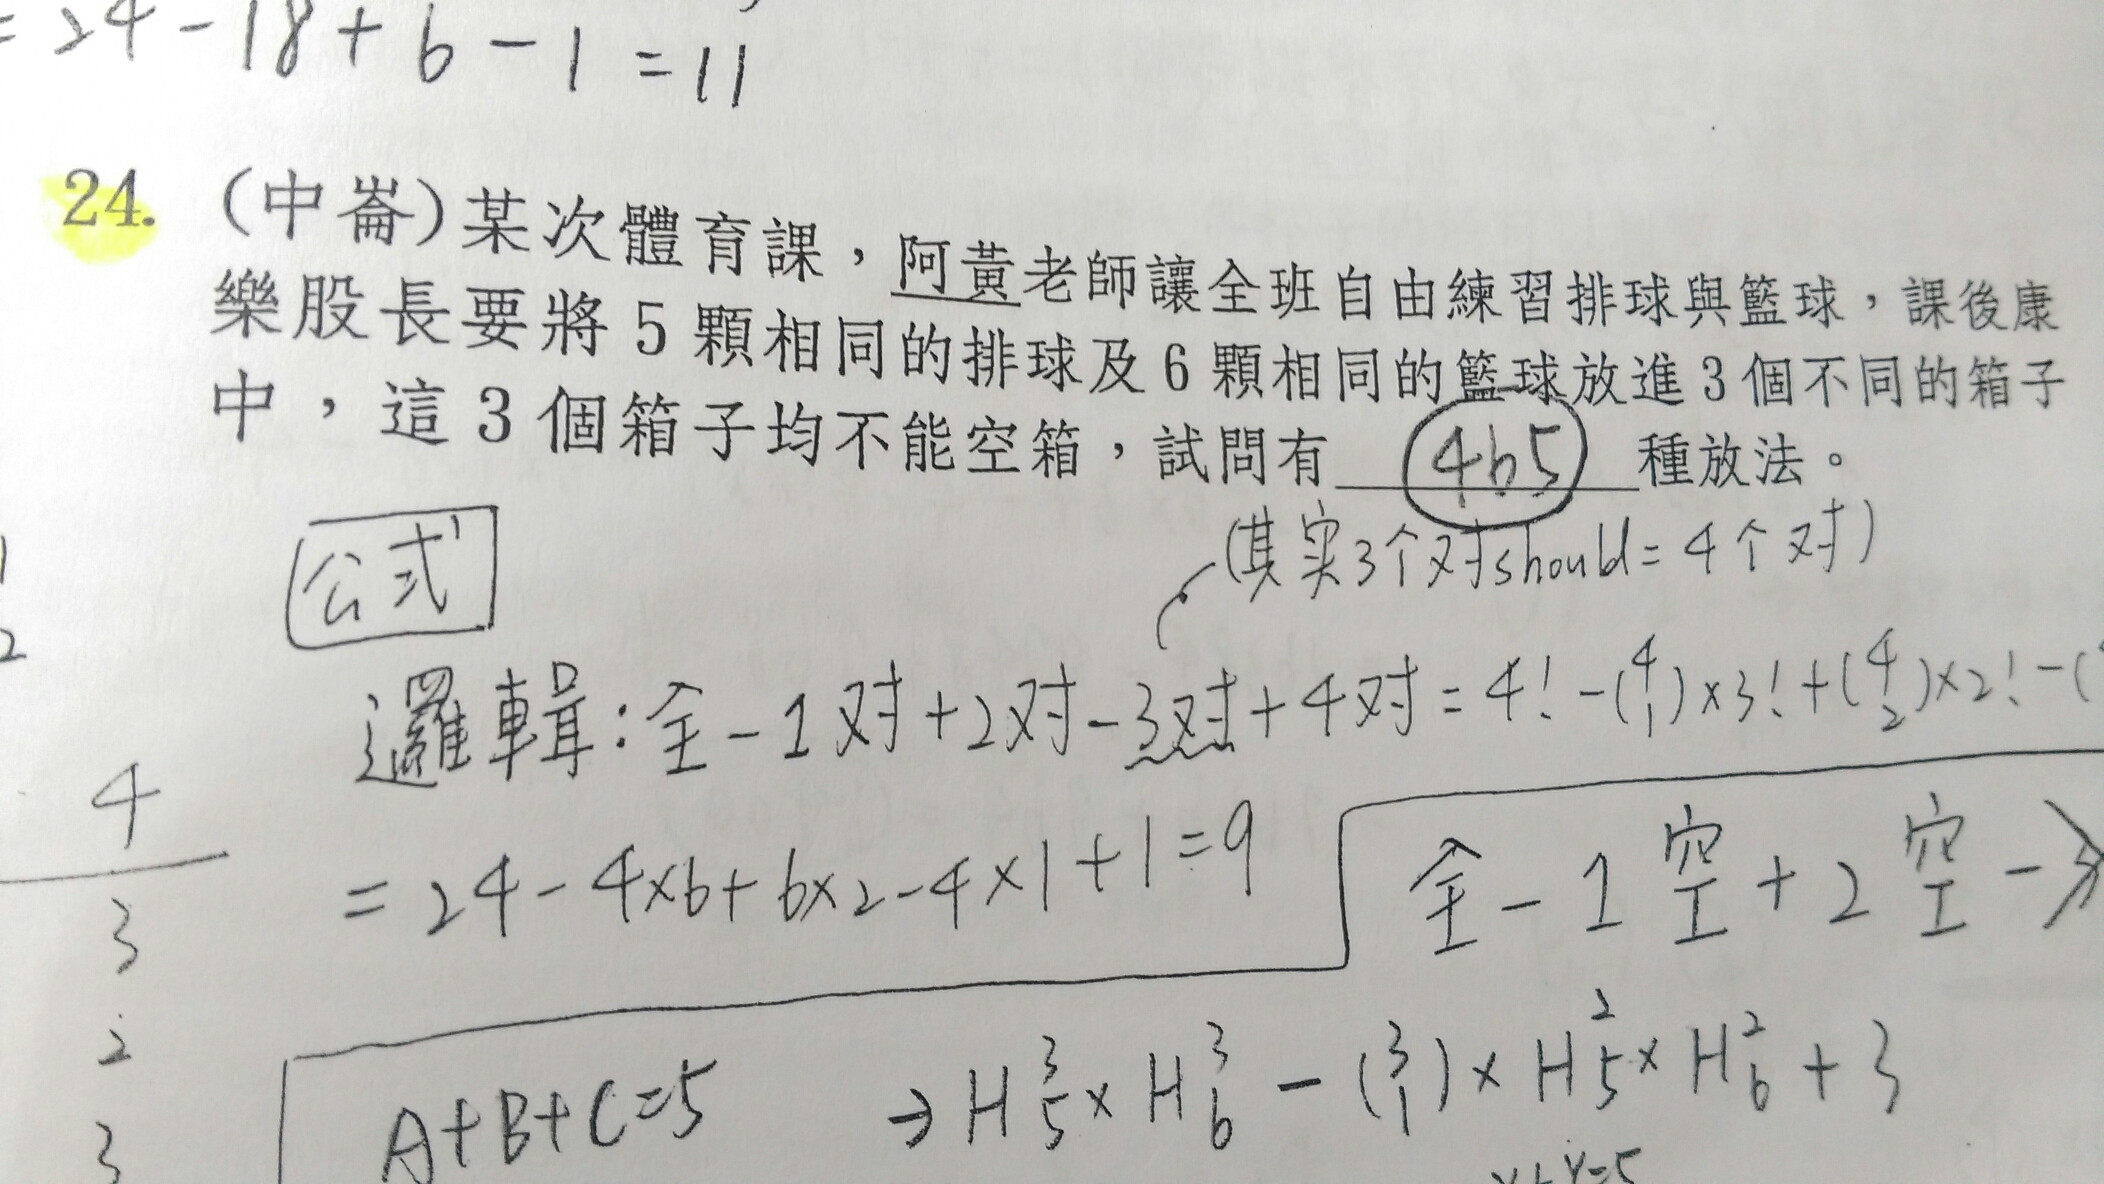 = 24 - 18 + 6 - 1 = 11
24. (中崙)某次體育課，阿黃老師讓全班自由練習排球與籃球，課後康
樂股長要將 5 顆相同的排球及 6 顆相同的籃球放進 3 個不同的箱子
中，這 3 個箱子均不能空箱，試問有 465 種放法。
(其实3个对should=4个对)
公式
邏輯:全-1对+2对-3对+4对=4!-(4 1)×3!+(4 2)×2!-(
= 24-4×6+6×2-4×1+1=9
全-1空+2空-3
A+B+C=5 → H³₅×H³₆-(3 1)×H²₅×H²₆+3
4
3
2
3
1
2